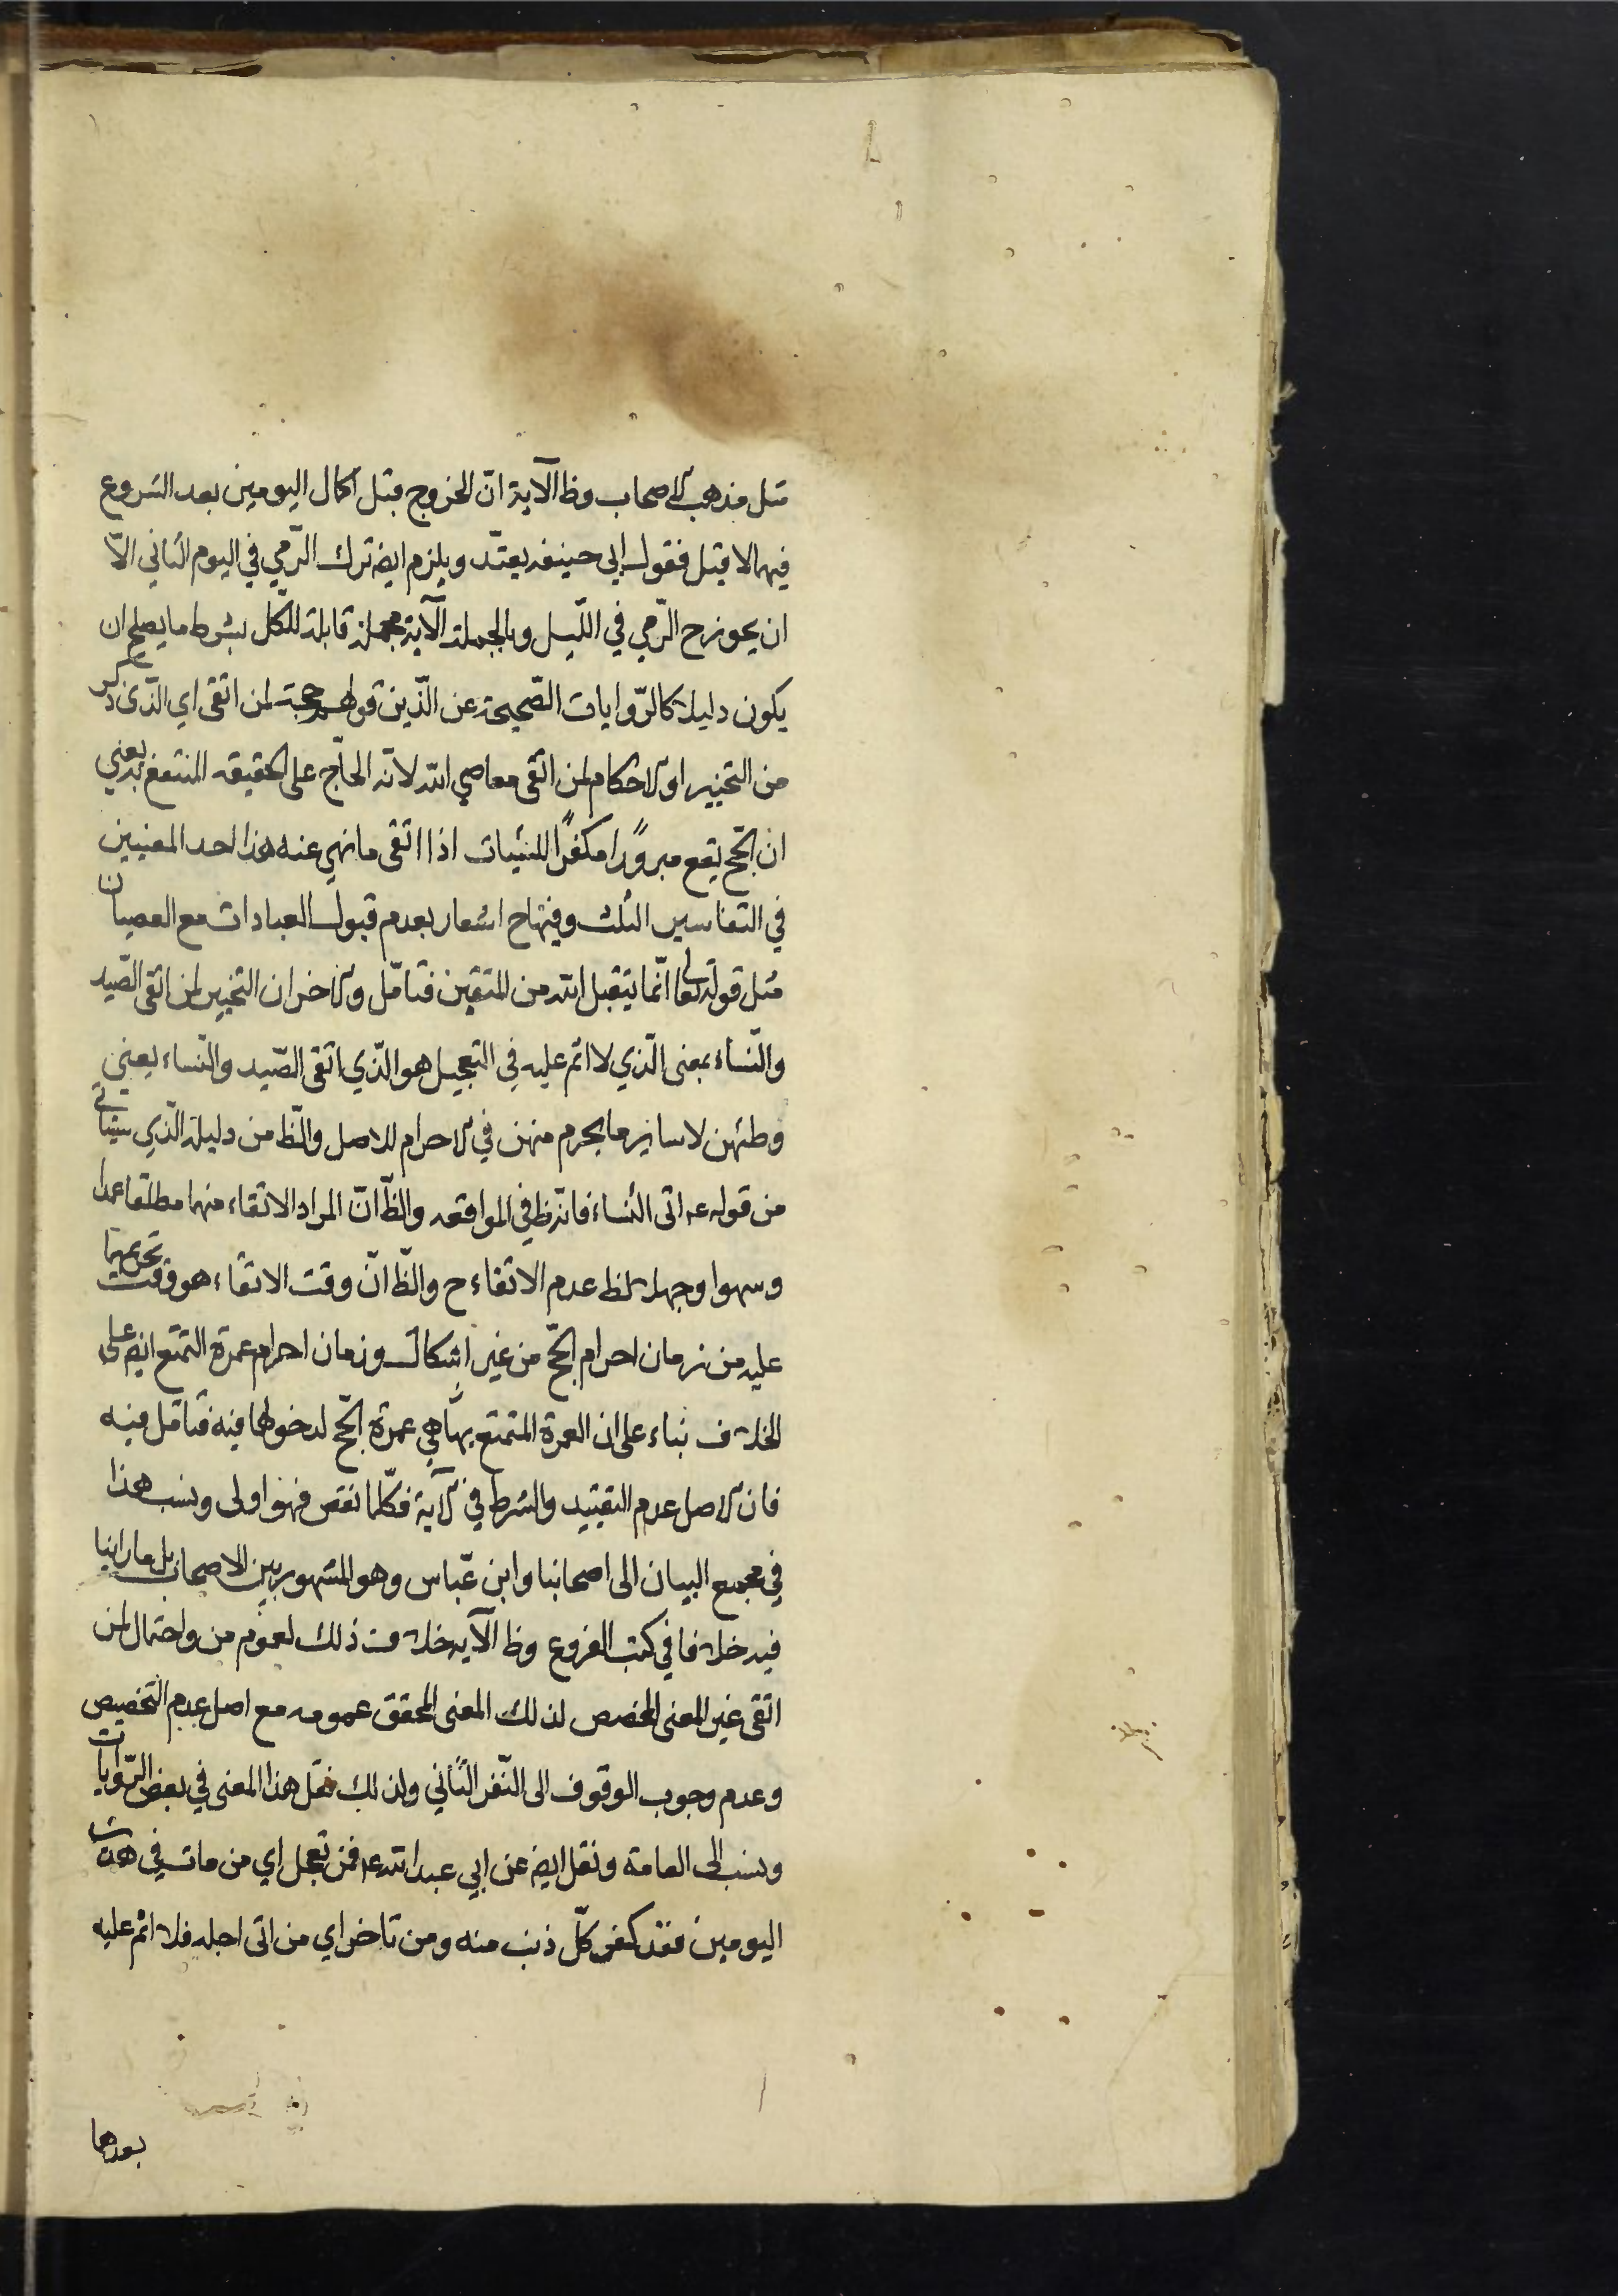 مثل مذهب الاصحاب وظ الآية انّ الخروج قبل اكمال اليومين بعد الشروع
فيهما لا قبل فقول ابي حنيفه يعتد ويلزم ايضه ترك الرّمي في اليوم الثاني الّا
ان يجوز ح الرّمي في اللّيل وبالجملة الآية مجملة قابلة للكلّ بشرط ما يصلح ان
يكون دليلا كالرّوايات الصّحيحة عن الّذين قولهم حجة لمن اتقى اي الّذى ذكر
من التخيير او الاحكام لمن اتقى معاصي الله لانّه الحاجّ على الحقيقه المنتفع به يعني
ان الحجّ يقع مبرورًا مكفرًا للسّيئات اذا اتقى ما نهي عنه هذا احد المعنيين
في التفاسير الثلث وفيها ح اشعار بعدم قبول العبادات مع العصيان
مثل قوله تعالى انّما يتقبل الله من المتقين فتامّل والاخر ان التخيير لمن اتقى الصّيد
والنّساء بمعنى الّذي لا اثم عليه في التعجيل هو الّذي اتقى الصّيد والنّساء يعني
وطئهن لا ساير ما يحرم منهن في الاحرام للاصل والظ من دليله الّذي سيئاتي
من قوله عه اتى النّساء فانّه ظ في المواقعه والظّ انّ المراد الاتقاء منهما مطلقا عمدا
وسهوا وجهلا لظ عدم الاتقاء ح والظّ انّ وقت الاتقاء هو وقت تحريمهما
عليه من زمان احرام الحجّ من غير اشكال وزمان احرام عمرة التمتع ايضه على
الخلاف بناء على ان العمرة المتمتع بها هي عمرة الحجّ لدخولها فيه فتامّل فيه
فان الاصل عدم التقييد والشرط في الآية فكلّما نقص فهو اولى ونسب هذا
في مجمع البيان الى اصحابنا وابن عبّاس وهو المشهور بين الاصحاب بل ما راينا
فيه خلافا في كتب الفروع وظ الآيه خلاف ذلك لعموم من واحتمال لمن
اتقى غير المعنى المخصص لذلك المعنى المحقق عمومه مع اصل عدم التخصيص
وعدم وجوب الوقوف الى النّفر الثّاني ولذلك نقل هذا المعنى في بعض الرّوايات
ونسب الى العامة ونقل ايضه عن ابي عبد الله عه فمن تعجل اي من مات في هذين
اليومين فقد كفر كلّ ذنب منه ومن تاخر اي من اتى اجله فلا اثم عليه
بعدها